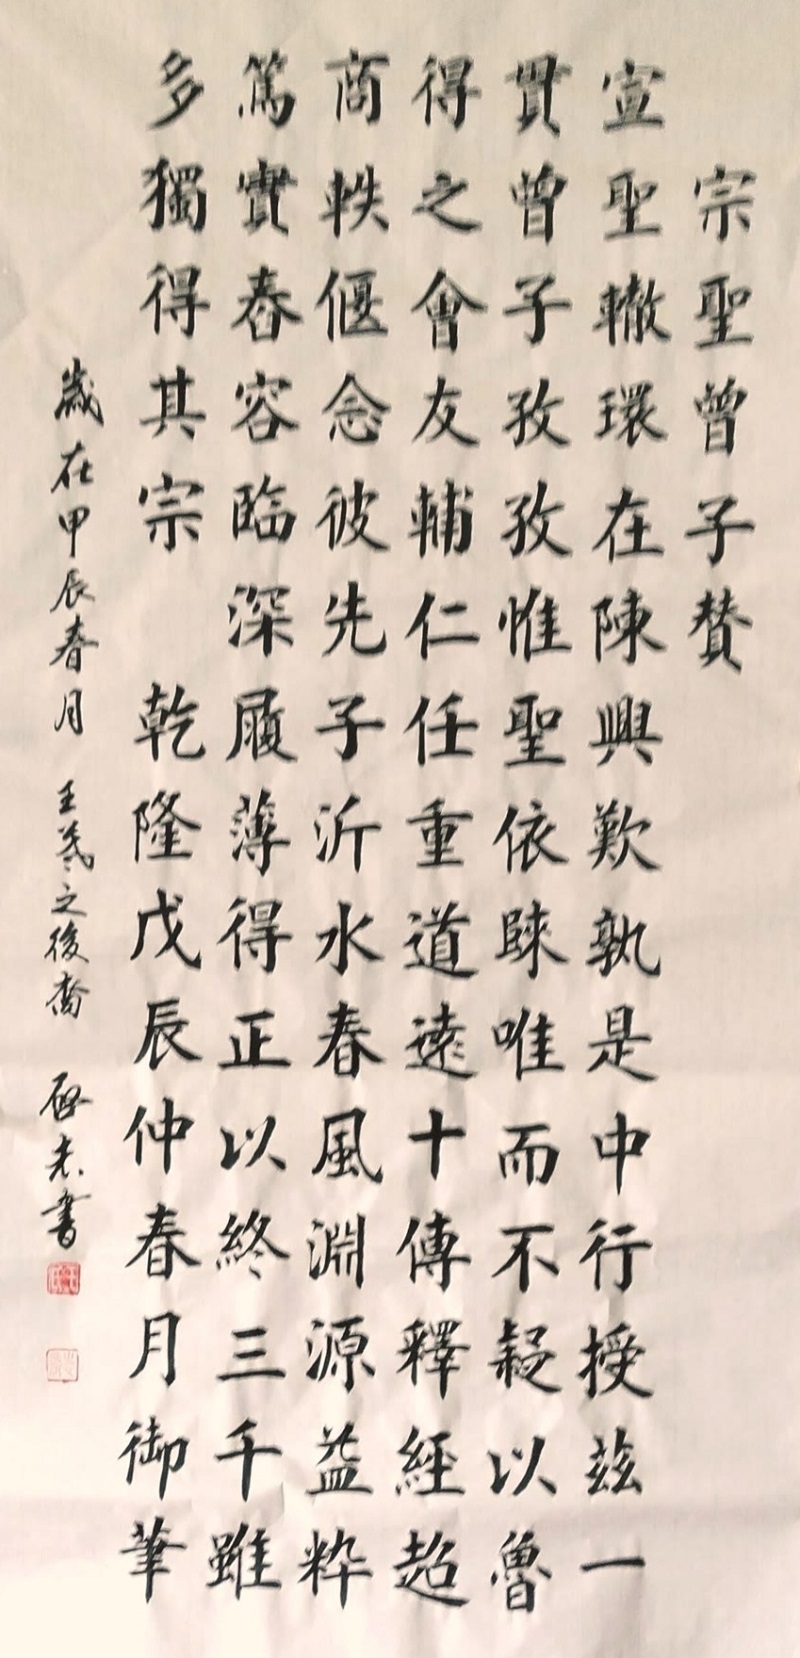 宗聖曾子贊
宣聖轍環在陳興歎孰是中行授茲一
貫曾子孜孜惟聖依歸唯而不疑以魯
得之會友輔仁任重道遠十傳釋經超
商軼偃念彼先子沂水春風淵源益粹
篤實春容臨深履薄得正以終三千雖
多獨得其宗 乾隆戊辰仲春月御筆
歲在甲辰春月 王羲之後裔 啓志書